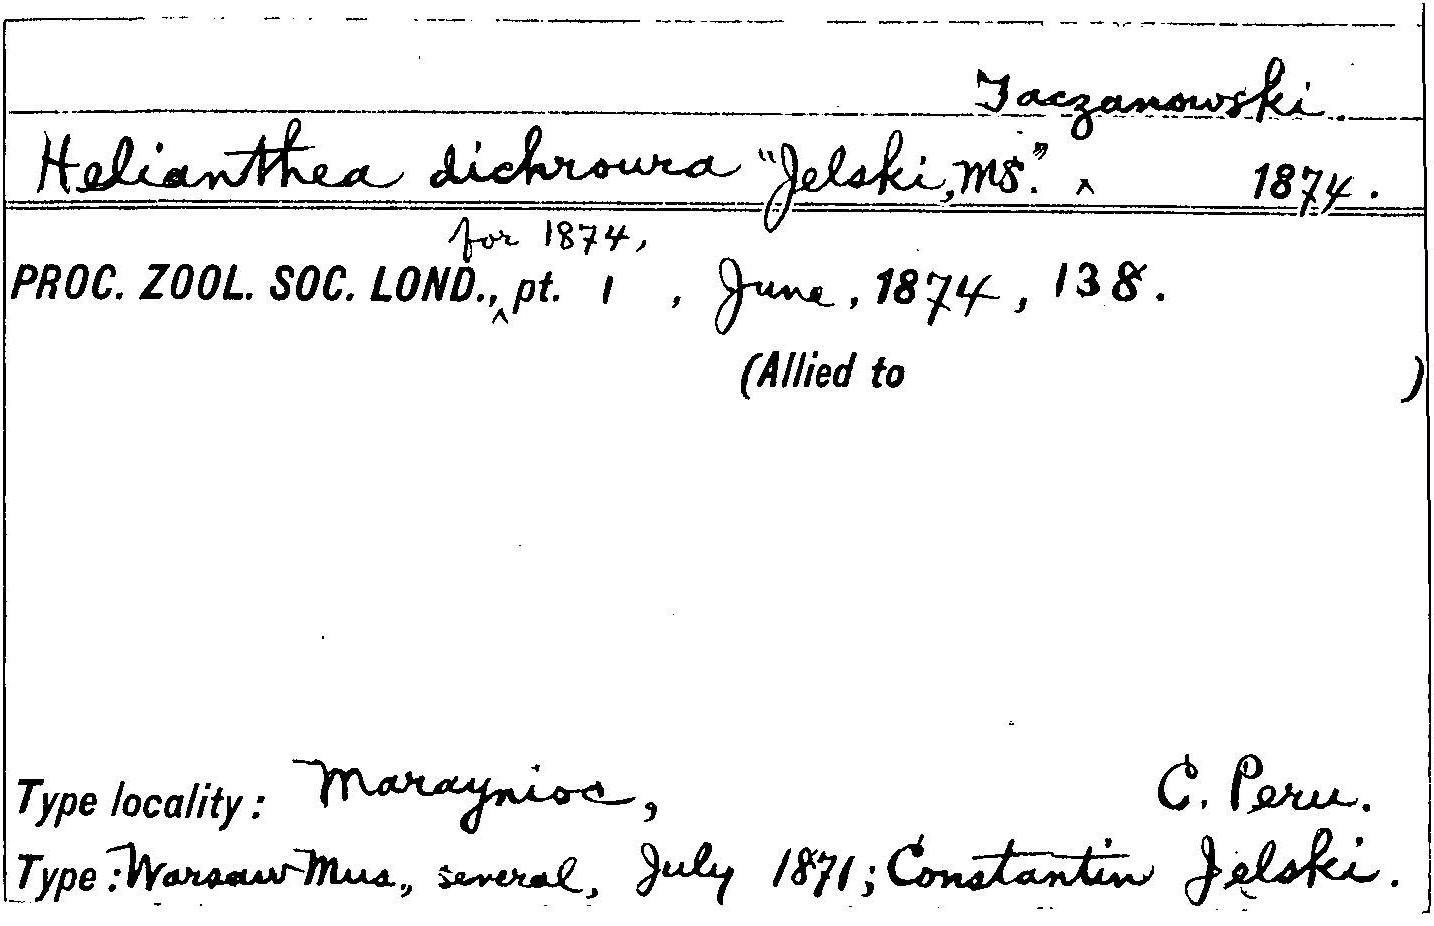 Taczanowski.
Helianthea dichroura "Jelski, MS." ^ 1874.
for 1874,
PROC. ZOOL. SOC. LOND., ^ pt. 1, June, 1874, 138.
(Allied to )
Type locality: Maraynioc, C. Peru.
Type: Warsaw Mus., several, July 1871; Constantin Jelski.